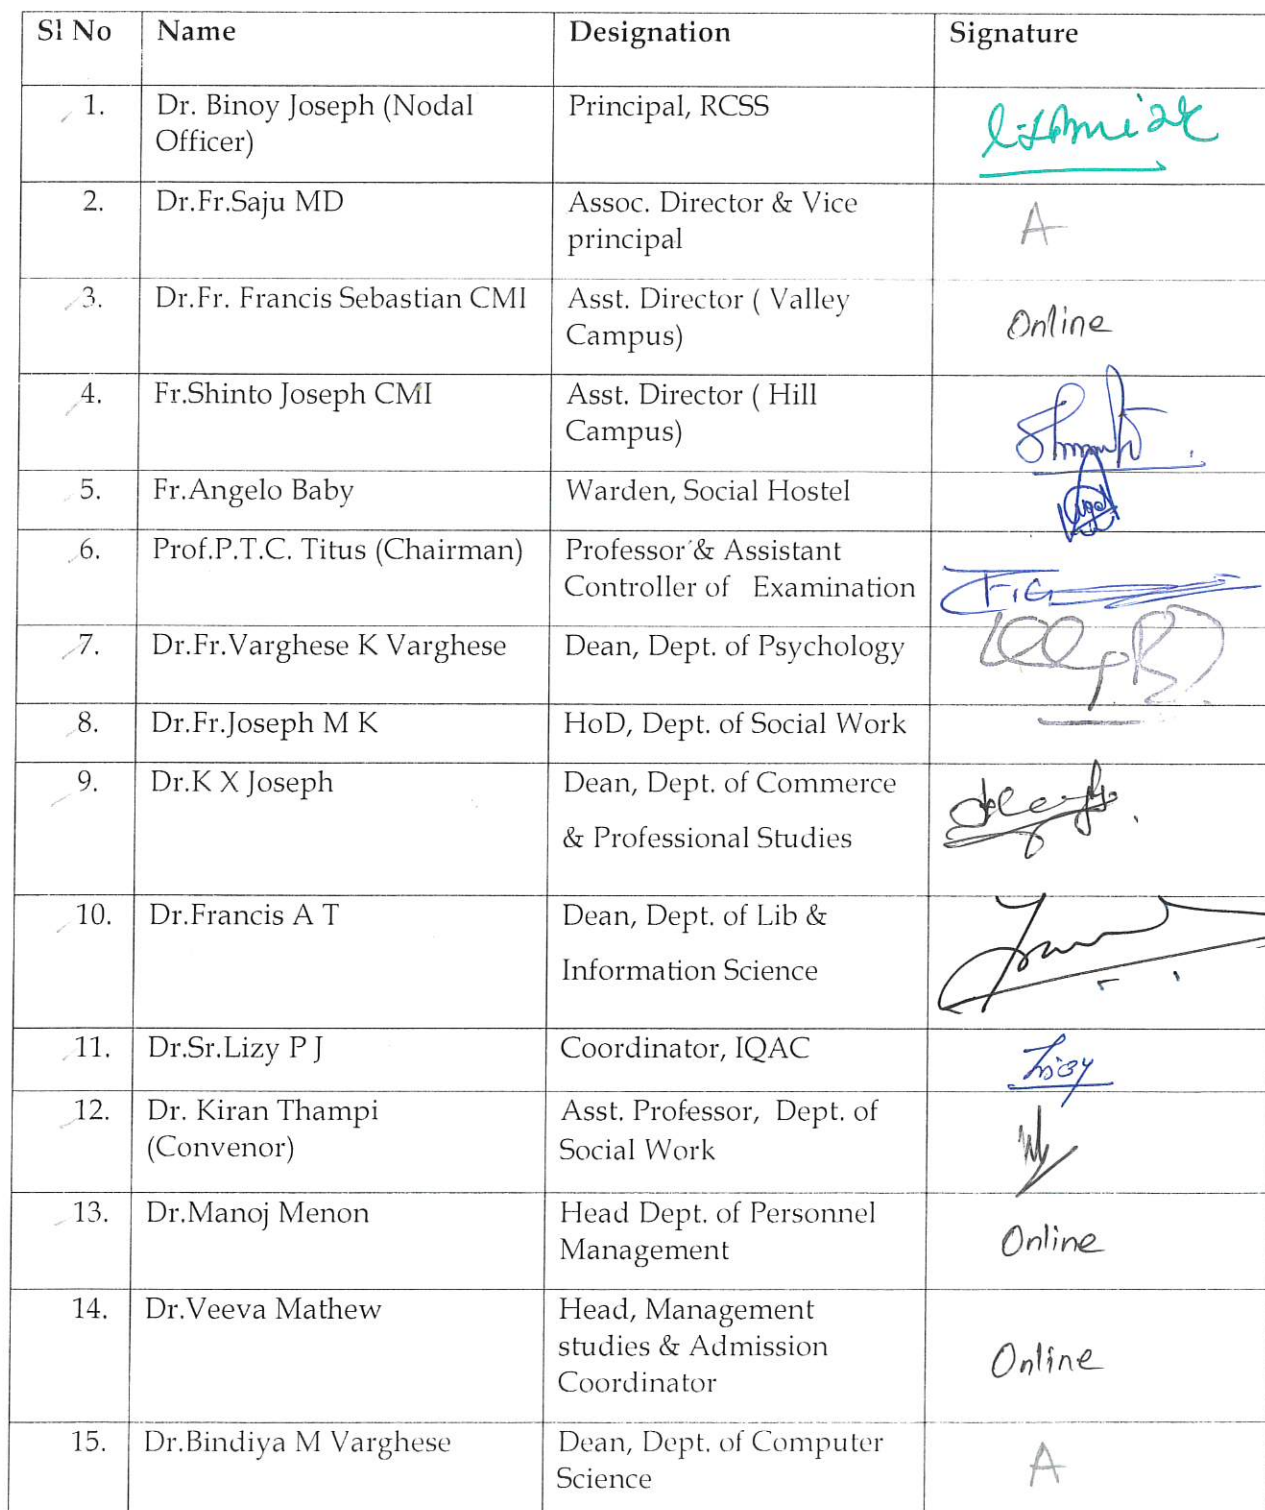 Sl No Name Designation Signature
1. Dr. Binoy Joseph (Nodal Principal, RCSS
Officer)
2. Dr.Fr.Saju MD Assoc. Director & Vice A
principal
3. Dr.Fr. Francis Sebastian CMI Asst. Director ( Valley Online
Campus)
4. Fr.Shinto Joseph CMI Asst. Director ( Hill
Campus)
5. Fr.Angelo Baby Warden, Social Hostel
6. Prof.P.T.C. Titus (Chairman) Professor & Assistant
Controller of Examination
7. Dr.Fr.Varghese K Varghese Dean, Dept. of Psychology
8. Dr.Fr.Joseph M K HoD, Dept. of Social Work
9. Dr.K X Joseph Dean, Dept. of Commerce
& Professional Studies
10. Dr.Francis A T Dean, Dept. of Lib &
Information Science
11. Dr.Sr.Lizy P J Coordinator, IQAC Lizy
12. Dr. Kiran Thampi Asst. Professor, Dept. of
(Convenor) Social Work
13. Dr.Manoj Menon Head Dept. of Personnel Online
Management
14. Dr.Veeva Mathew Head, Management
studies & Admission Online
Coordinator
15. Dr.Bindiya M Varghese Dean, Dept. of Computer A
Science